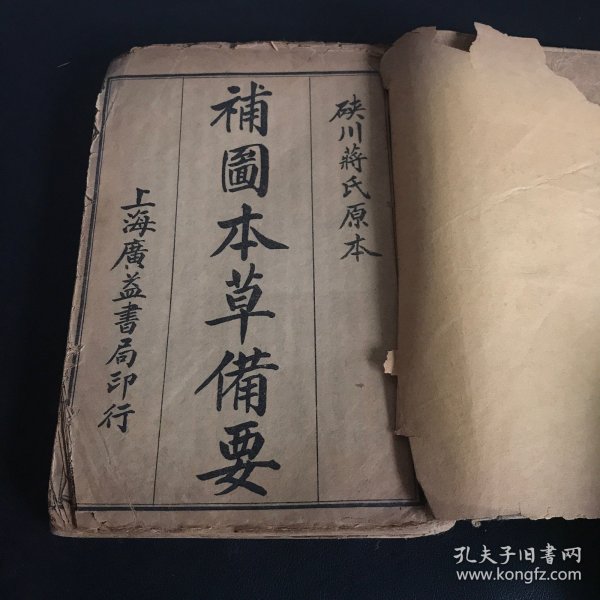 硖川蔣氏原本
補圖本草備要
上海廣益書局印行
孔夫子旧书网
www.kongfz.com